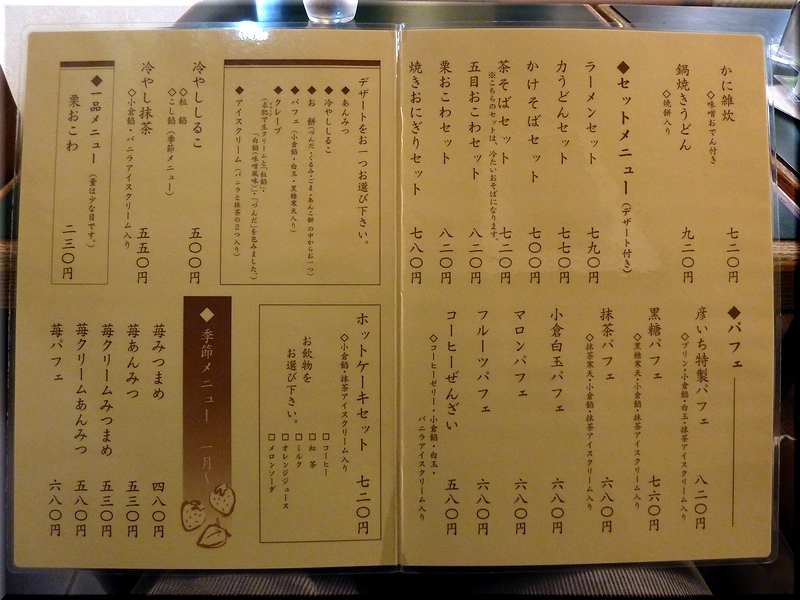 かに雑炊 七二〇円
◇味噌おでん付き
鍋焼きうどん 九二〇円
◇焼餅入り
◆セットメニュー（デザート付き）
ラーメンセット 七九〇円
力うどんセット 七七〇円
かけそばセット 七〇〇円
茶そばセット 七二〇円
※こちらのセットは、冷たいおそばになります。
五目おこわセット 八二〇円
栗おこわセット 八二〇円
焼きおにぎりセット 七八〇円
◆パフェ
彦いち特製パフェ 八二〇円
◇プリン・小倉餡・白玉・抹茶アイスクリーム入り
黒糖パフェ 七六〇円
◇黒糖寒天・小倉餡・抹茶アイスクリーム入り
抹茶パフェ 六八〇円
◇抹茶寒天・小倉餡・抹茶アイスクリーム入り
小倉白玉パフェ 六八〇円
マロンパフェ 六八〇円
フルーツパフェ 六八〇円
コーヒーぜんざい 五八〇円
◇コーヒーゼリー・小倉餡・白玉・
バニラアイスクリーム入り
デザートをお一つお選び下さい。
◆あんみつ
◆冷やししるこ
◆お餅（づんだ・くるみ・ごま・あんこ餅の中からお一つ）
◆パフェ（小倉餡・白玉・黒糖寒天入り）
◆クレープ
◆アイスクリーム（バニラと抹茶の2つ入り）
冷やししるこ 五〇〇円
◇粒餡
◇こし餡（季節メニュー）
冷やし抹茶 五五〇円
◇小倉餡・バニラアイスクリーム入り
◆一品メニュー（量は少な目です。）
栗おこわ 二三〇円
ホットケーキセット 七二〇円
◇小倉餡・抹茶アイスクリーム入り
お飲物を
お選び下さい。
□コーヒー
□紅茶
□ミルク
□オレンジジュース
□メロンソーダ
◆季節メニュー 一月〜
苺みつまめ 四八〇円
苺あんみつ 五三〇円
苺クリームみつまめ 五三〇円
苺クリームあんみつ 五八〇円
苺パフェ 六八〇円